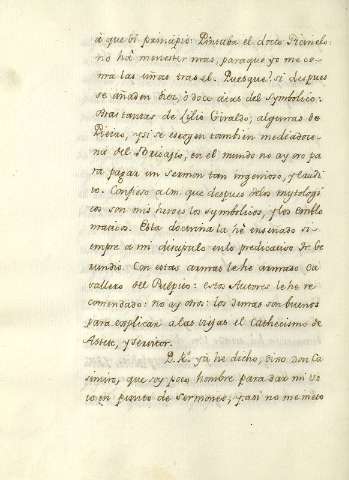 á que bl principio: Pinciba el docto Picinelo:
no há menester mas, para que yo me co-
ma las uñas tras el. Pues que! si despues
se añaden diez, ó doce aicas del Symbolico:
otras tantas de Lilio Giraldo, algunas de
Pierio, y si se escogen tambien media doce-
na del Brixiano, en el mundo no ay oro pa
ra pagar un sermon tan ingenioso, y erudi
to. Confieso á vm. que despues de los mytologi
cos son mis heroes los symbolicos, y los emble
maticos. Esta doctrina la hé enseñado si-
empre a mi discipulo en lo predicativo fr. Ge
rundio. Con estas armas le he armado Ca
vallero del Pulpito: estos Autores le he re
comendado: no ay otro: los demas son buenos
para explicar a las viejas el Cathecismo de
Astete, y servitor.
ya he dicho, dixo don Ca
simiro, que soy poco hombre para dar mi vo
to en punto de sermones, y asi no me meto